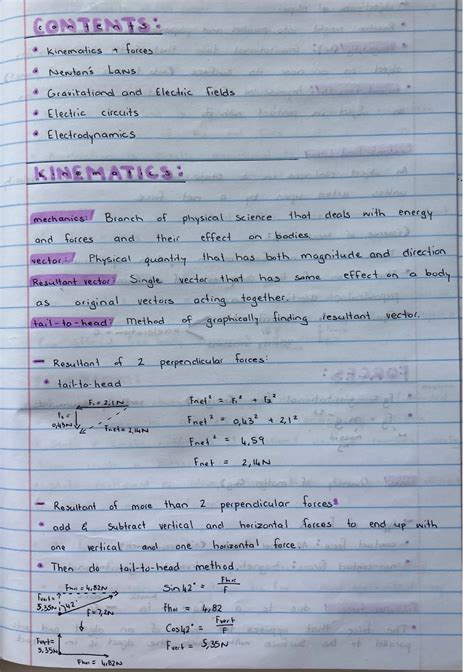 CONTENTS:
• Kinematics + forces
• Newton's Laws
• Gravitational and Electric fields
• Electric circuits
• Electrodynamics
KINEMATICS:
mechanics: Branch of physical science that deals with energy
and forces and their effect on bodies.
vector: Physical quantity that has both magnitude and direction
Resultant vector: Single vector that has same effect on a body
as original vectors acting together.
tail-to-head: Method of graphically finding resultant vector.
– Resultant of 2 perpendicular forces:
• tail-to-head
F₁ = 2,1N
F₂ =
0,43N
Fnet = 2,14N
Fnet² = F₁² + F₂²
Fnet² = 0,43² + 2,1²
Fnet² = 4,59
Fnet = 2,14N
– Resultant of more than 2 perpendicular forces:
• add & subtract vertical and horizontal forces to end up with
one vertical and one horizontal force.
• Then do tail-to-head method.
Fhor = 4,82N
Fvert =
5,35N
42°
F = 7,2N
Sin42° = Fhor/F
fhor = 4,82
Cos42° = Fvert/F
Fvert = 5,35N
Fvert =
5,35N
Fhor = 4,82N